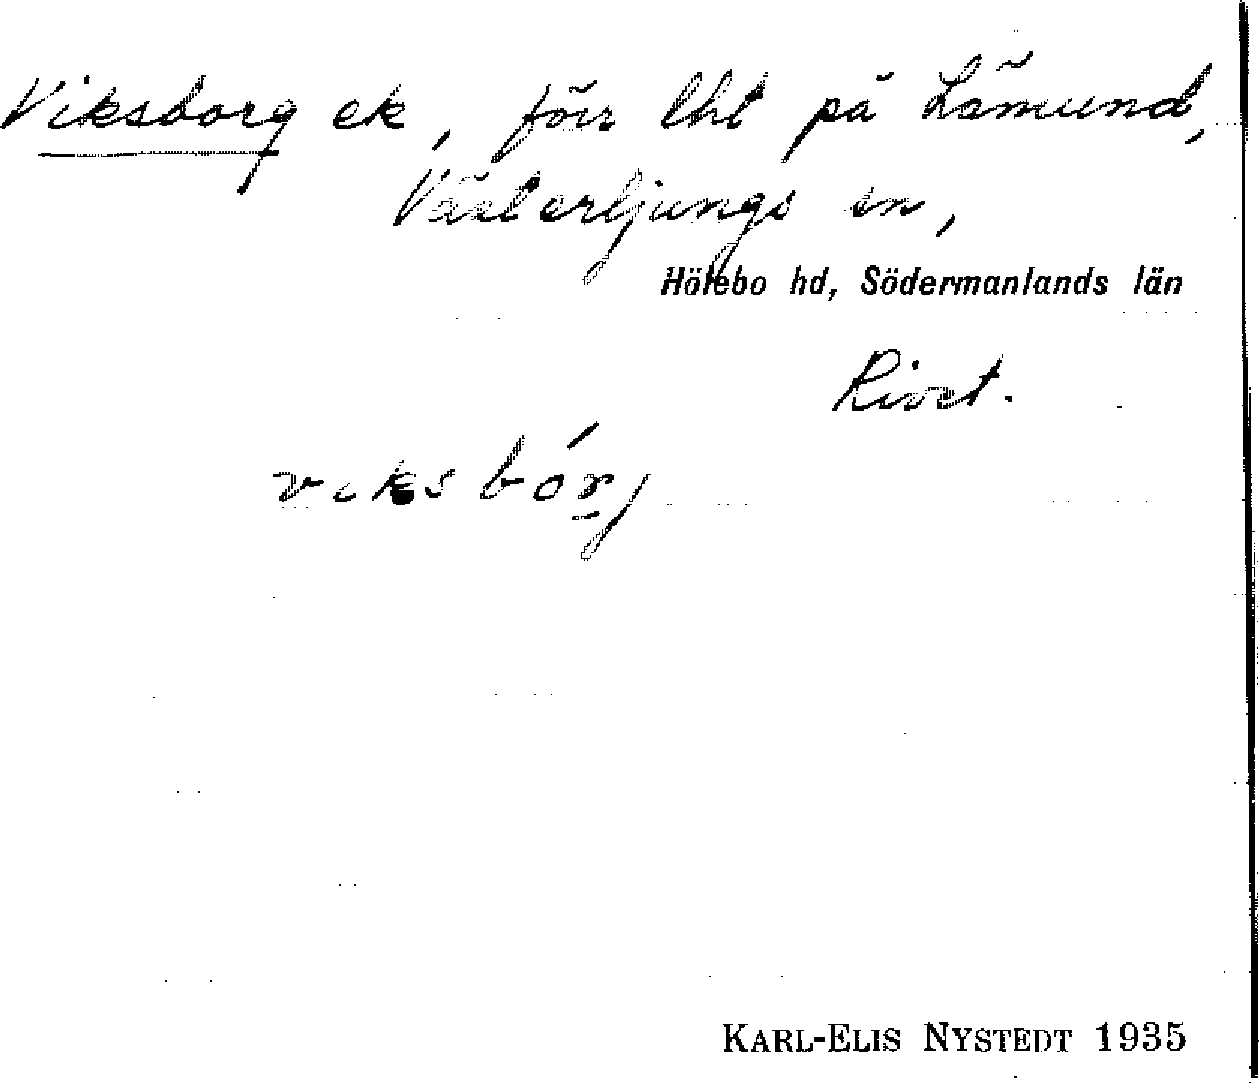 Viksborg ek, förr lht på Lämund,
Västerljungs sn,
Hölebo hd, Södermanlands län
Rivet.
viksbórj
KARL-ELIS NYSTEDT 1935